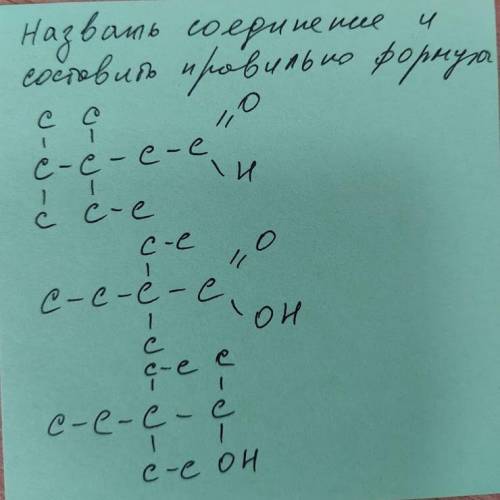 Назвать соединение и
составить правильно формулы
C C O
C - C - C - C
H
C C - C
C - C
O
C - C - C - C
OH
C
C - C C
C - C - C - C
C - C OH